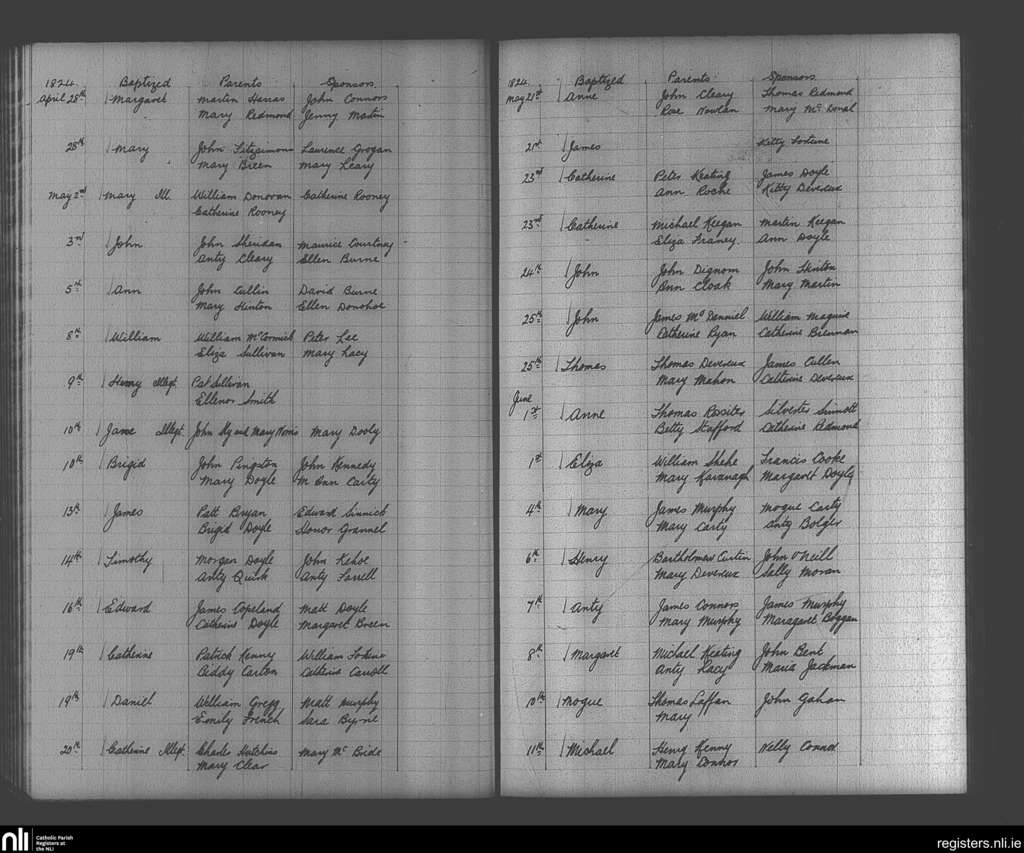 1824. Baptized Parents Sponsors
April 28th Margaret Martin Harras John Connors
Mary Redmond Jenny Martin
28th Mary John Fitzsimons Laurence Grogan
Mary Breen Mary Leary
May 2nd Mary Ill. William Donovan Catherine Rooney
Catherine Rooney
3rd John John Sheridan Maurice Courtney
Anty Cleary Ellen Burne
5th Ann John Cullin David Burne
Mary Hinton Ellen Donohoe
8th William William McCormick Peter Lee
Eliza Sullivan Mary Lacy
9th Henry Illegt. Pat Sullivan
Ellenor Smith
10th Jane Illegt. John Sly and Mary Norris Mary Dooly
10th Brigid John Pingston John Kennedy
Mary Doyle M Ann Carty
13th James Patt Bryan Edward Sinnick
Brigid Doyle Honor Grannel
14th Timothy Morgan Doyle John Kehoe
Anty Quirk Anty Farrell
16th Edward James Copeland Matt Doyle
Catherine Doyle Margaret Breen
19th Catherine Patrick Kenny William
Biddy Carton Catherine Carroll
19th Daniel William Gregg Matt Murphy
Emily French Sara Byrne
20th Catherine Illegt. Charles Hutchins Mary McBride
Mary Clear
1824. Baptized Parents Sponsors
May 21st Anne John Cleary Thomas Redmond
Rose Nowlan Mary McDonal
21st James Kitty Forteine
23rd Catherine Peter Keating James Doyle
Ann Roche Kitty Devereux
23rd Catherine Michael Keegan Martin Keegan
Eliza Franey Ann Doyle
24th John John Dignom John Hinton
Ann Cloak Mary Martin
25th John James McDanniel William Maguire
Catherine Ryan Catherine Brennan
25th Thomas Thomas Devereux James Cullen
Mary Mahon Catherine Devereux
June
1st Anne Thomas Rossiter Silvester Sinnott
Betty Stafford Catherine Redmond
1st Eliza William Shehe Francis Cooke
Mary Kavanagh Margaret Doyle
4th Mary James Murphy Mogue Carty
Mary Carty Anty Bolger
6th Henry Bartholomew Curtin John O'Neill
Mary Devereux Sally Moran
7th Anty James Connors James Murphy
Mary Murphy Maragaret Boggan
8th Margaret Michael Keating John Bent
Anty Lacy Maria Jackman
10th Mogue Thomas Laffan John Gahan
Mary
11th Michael Henry Kenny Nelly Connor
Mary Connor
nli Catholic Parish
Registers at
the NLI
registers.nli.ie